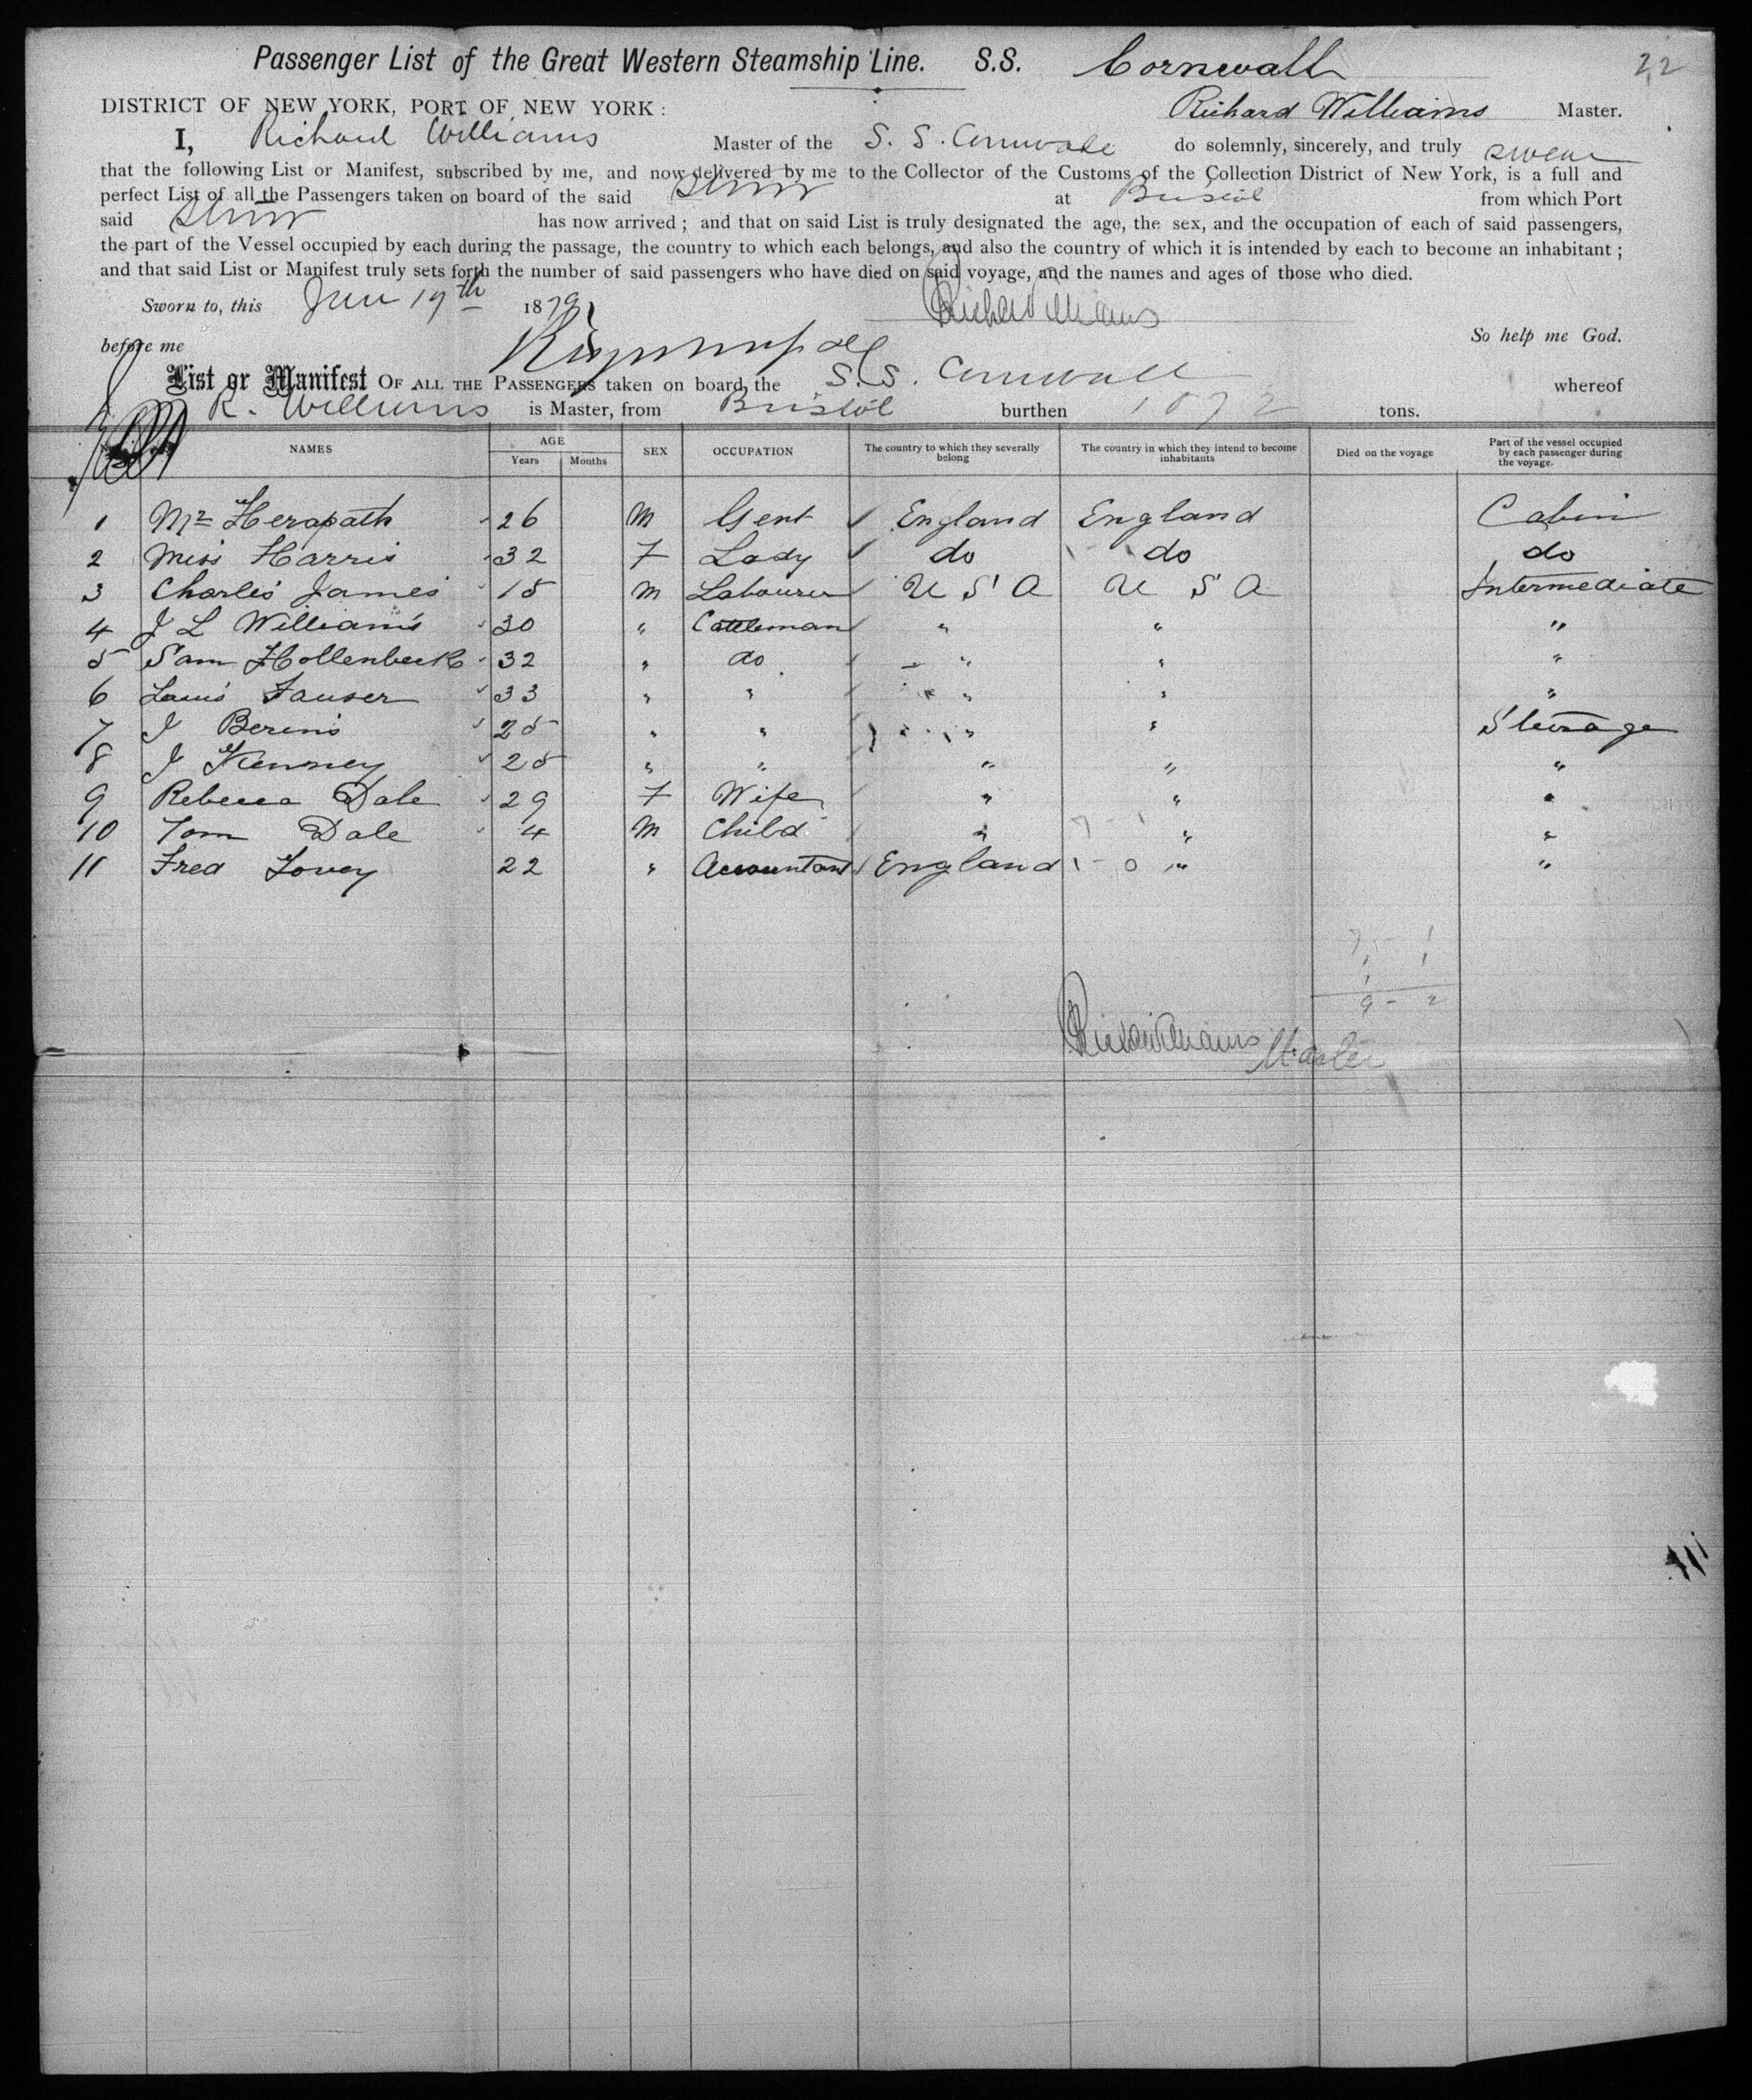 Passenger List of the Great Western Steamship Line. S.S. Cornwall 22
DISTRICT OF NEW YORK, PORT OF NEW YORK: Richard Williams Master.
I, Richard Williams Master of the S. S. Cornwall do solemnly, sincerely, and truly swear
that the following List or Manifest, subscribed by me, and now delivered by me to the Collector of the Customs of the Collection District of New York, is a full and
perfect List of all the Passengers taken on board of the said Strmr at Bristol from which Port
said Strmr has now arrived; and that on said List is truly designated the age, the sex, and the occupation of each of said passengers,
the part of the Vessel occupied by each during the passage, the country to which each belongs, and also the country of which it is intended by each to become an inhabitant;
and that said List or Manifest truly sets forth the number of said passengers who have died on said voyage, and the names and ages of those who died.
Sworn to, this 19th 1879 Richd Williams
before me So help me God.
List or Manifest OF ALL THE PASSENGERS taken on board the S.S. Cornwall whereof
R. Williams is Master, from Bristol burthen tons.
NAMES AGE Years Months SEX OCCUPATION The country to which they severally belong The country in which they intend to become inhabitants Died on the voyage Part of the vessel occupied by each passenger during the voyage.
1 Mr Herapath 26 M Gent England England Cabin
2 Miss Harris 32 F Lady do do do
3 Charles James 18 M Labourer U S A U S A Intermediate
4 J L Williams 30 " Cattleman " " "
5 Sam Hollenbeck 32 " do " " "
6 Louis Fauser 33 " " " " "
7 J Berens 25 " " " " Steerage
8 J Kenney 25 " " " " "
9 Rebecca Dale 29 F Wife " " "
10 Tom Dale 4 M Child " " "
11 Fred Lovey 22 " Accountant England " "
7 - 1
1 1
1
9 - 2
Richd Williams Master